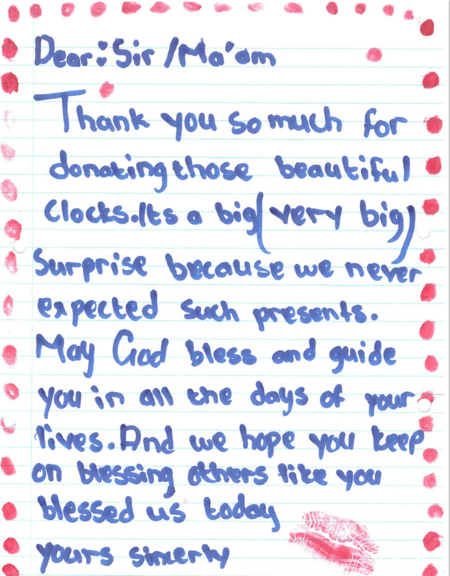 Dear: Sir /Ma'am
Thank you so much for
donating those beautiful
clocks. Its a big (very big)
Surprise because we never
expected such presents.
May God bless and guide
you in all the days of your
lives. And we hope you keep
on blessing others like you
blessed us today
yours sincerly